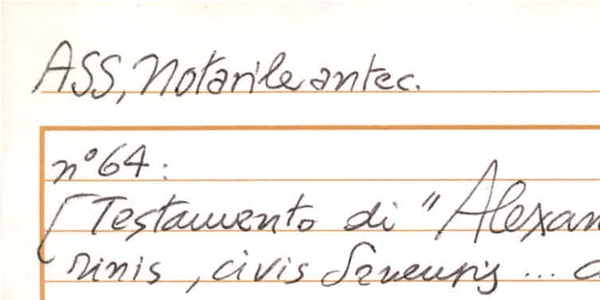 ASS, Notarile antec.
n° 64:
[Testamento di "Alexan
rinis, civis Senensis ... c